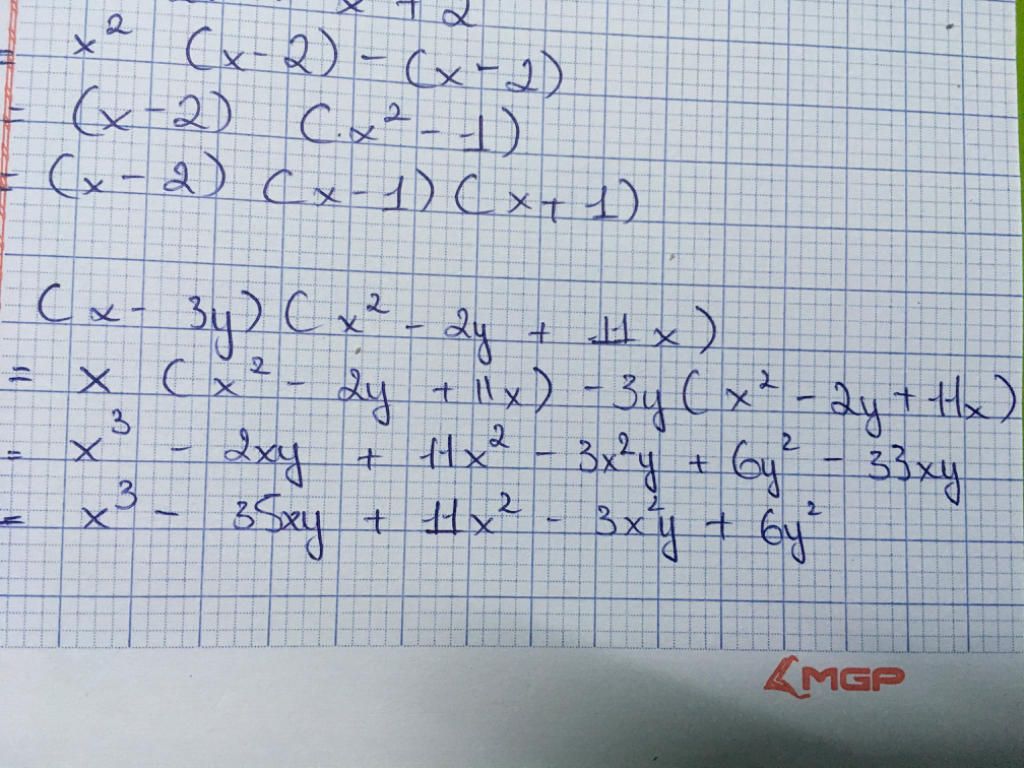 x + 2
= x² (x-2) - (x-2)
= (x-2) (x² - 1)
= (x-2) (x-1) (x+1)
(x - 3y) (x² - 2y + 11x)
= x (x² - 2y + 11x) - 3y (x² - 2y + 11x)
= x³ - 2xy + 11x² - 3x²y + 6y² - 33xy
= x³ - 35xy + 11x² - 3x²y + 6y²
MGP